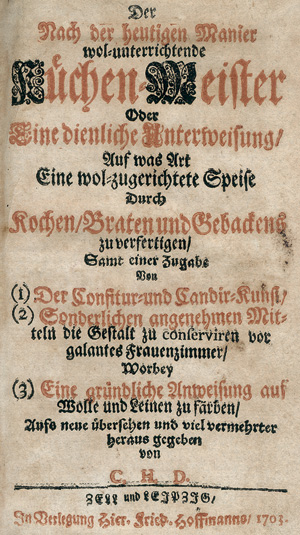 Der
Nach der heutigen Manier
wol-unterrichtende
Küchen-Meister
Oder
Eine dienliche Unterweisung/
Auf was Art
Eine wol-zugerichtete Speise
Durch
Kochen/Braten und Gebackens
zu verfertigen/
Samt einer Zugabe
Von
(1) Der Confitur-und Candir-Kunst/
(2) Sonderlichen angenehmen Mit-
teln die Gestalt zu conserviren vor
galantes Frauenzimmer/
Worbey
(3) Eine gründliche Anweisung auf
Wolle und Leinen zu färben/
Aufs neue übersehen und viel vermehrter
heraus gegeben
von
C. H. D.
ZELL und LEIPZIG/
In Verlegung Hier. Fried. Hoffmanns/ 1703.